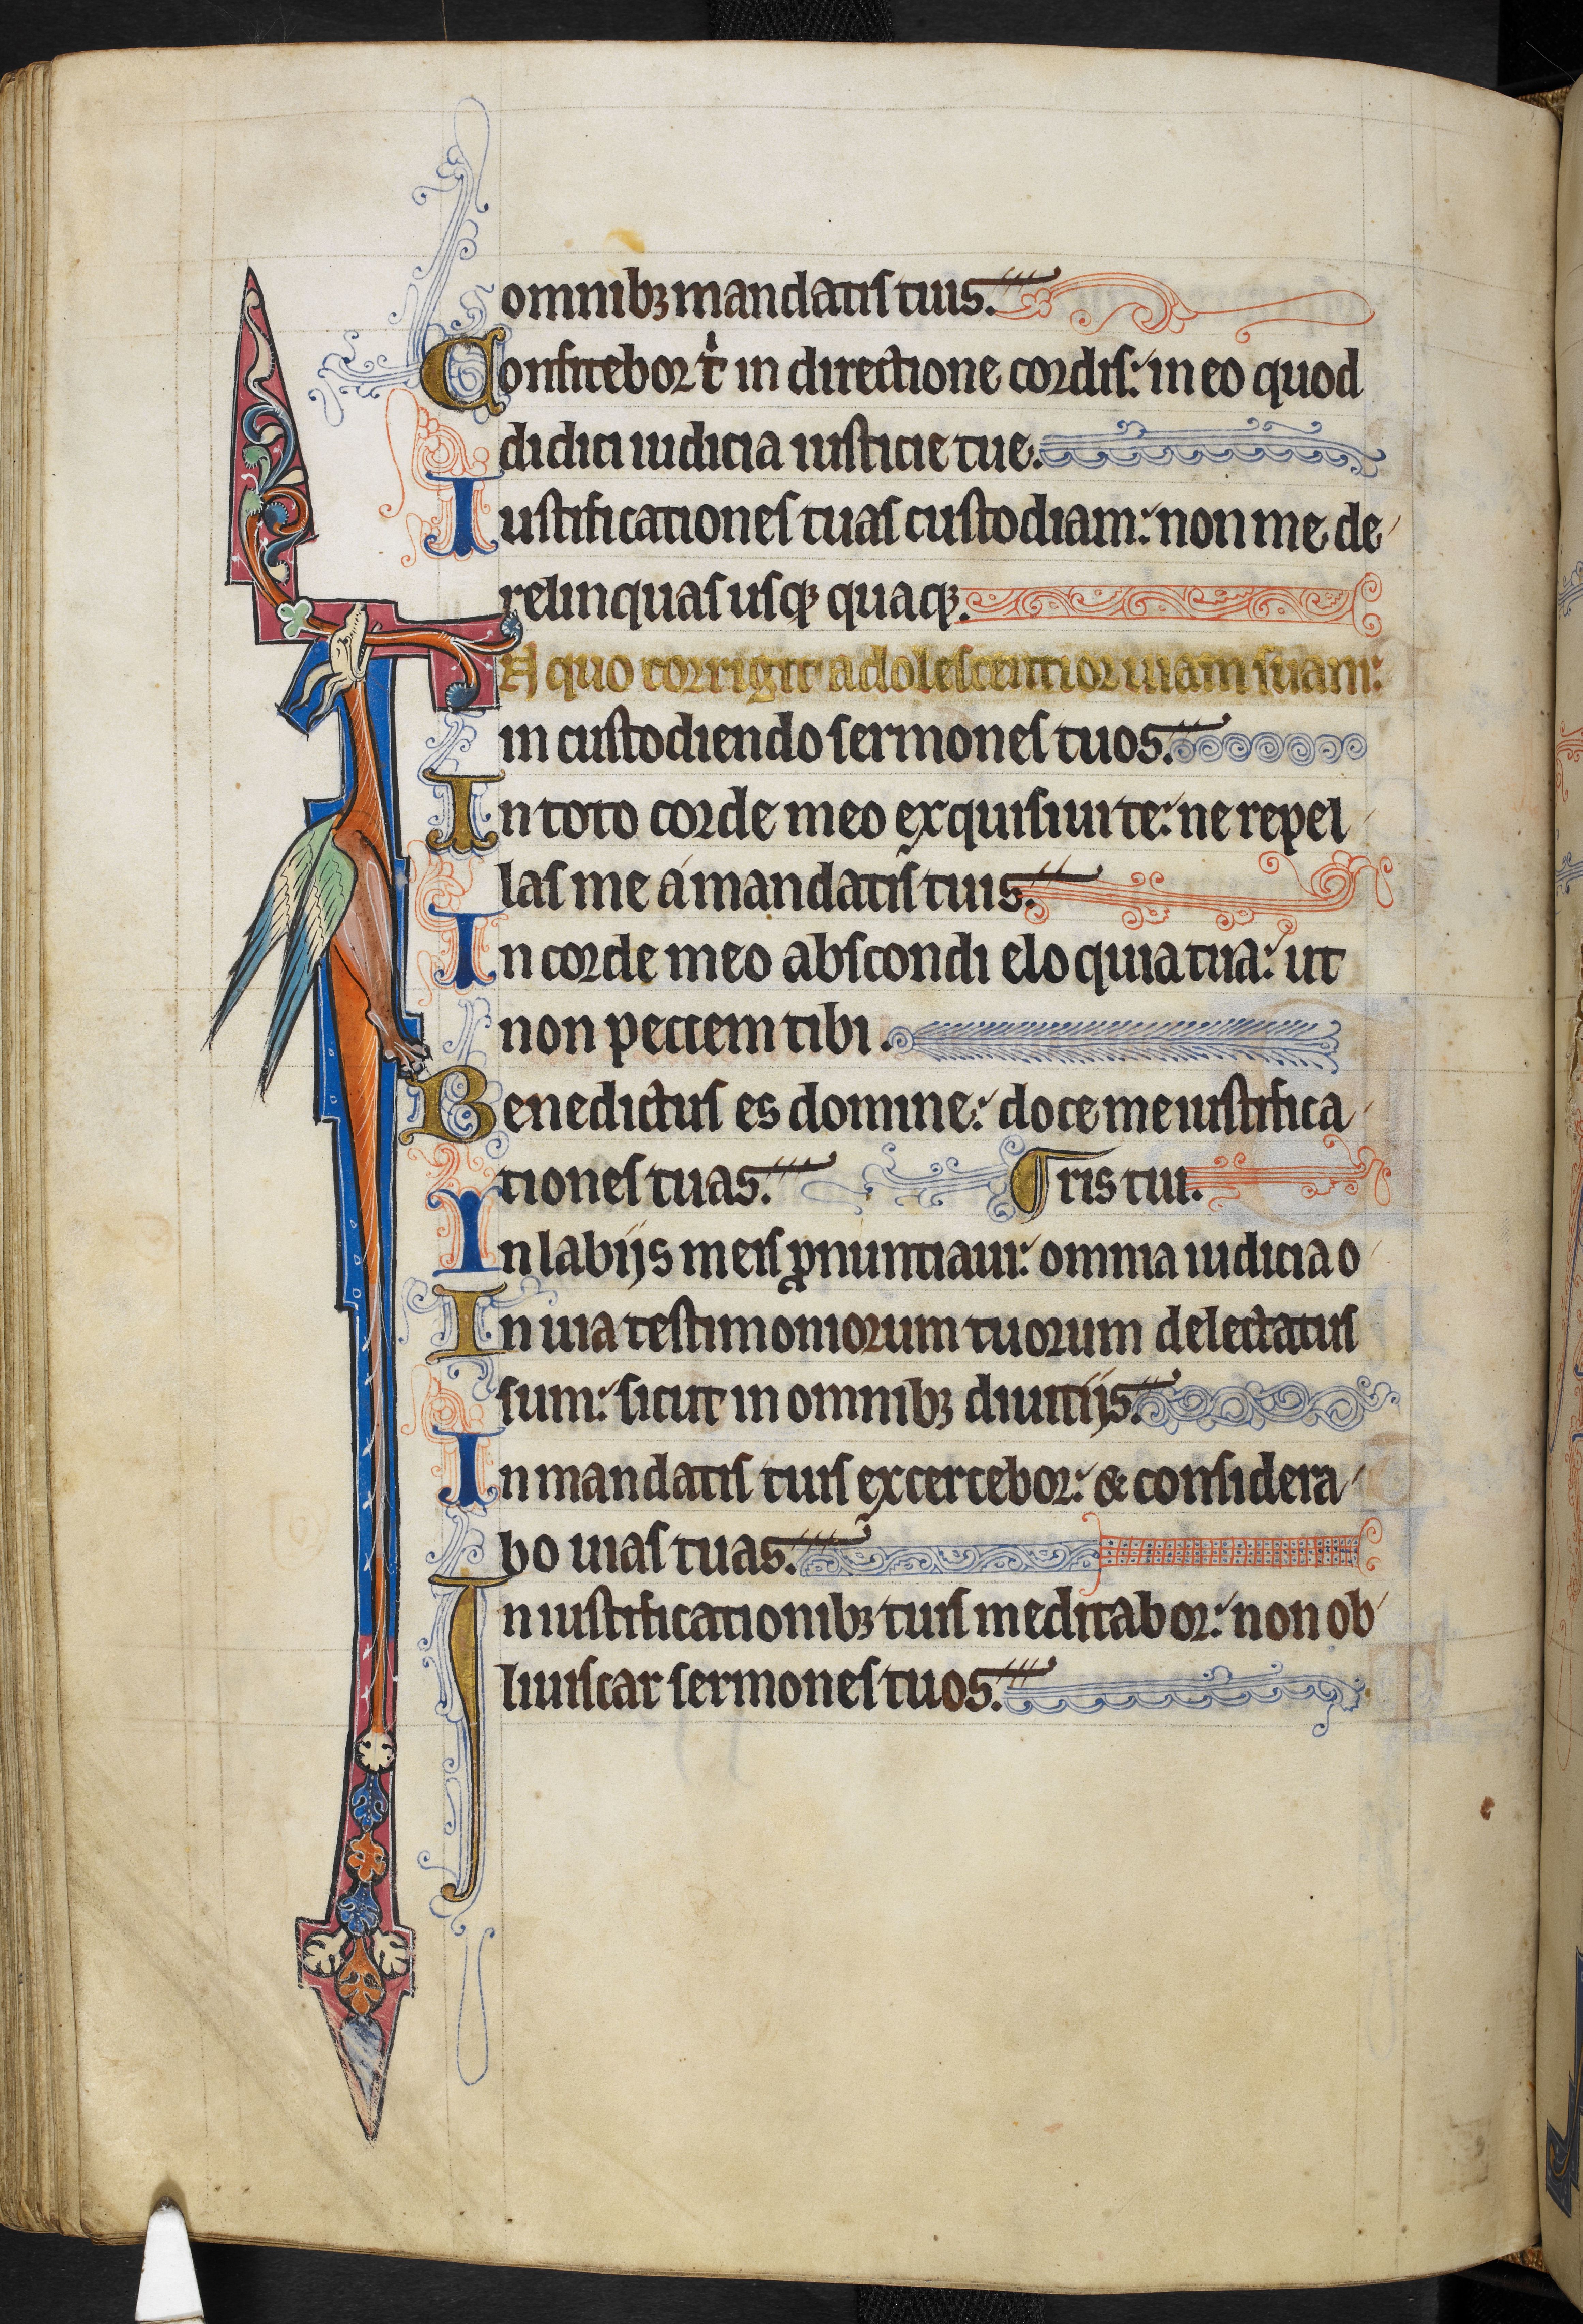 omnibꝫ mandatis tuis.
Confitebor t̾ in directione cordis: in eo quod
didici iudicia iusticie tue.
Iustificationes tuas custodiam: non me de
relinquas usqꝫ quaqꝫ.
A quo corrigit adolescentior uiam suam:
in custodiendo sermones tuos.
In toto corde meo exquisiui te: ne repel
las me á mandatis tuis.
In corde meo abscondi eloquia tua: ut
non peccem tibi.
Benedictus es domine: doce me iustifica
tiones tuas. ¶ ris tui.
In labijs meis ꝓnuntiaui: omnia iudicia o
In uia testimoniorum tuorum delectatus
sum: sicut in omnibꝫ diuitijs.
In mandatis tuis excercebor: & considera
bo uias tuas.
In iustificationibꝫ tuis meditabor: non ob
liuiscar sermones tuos.